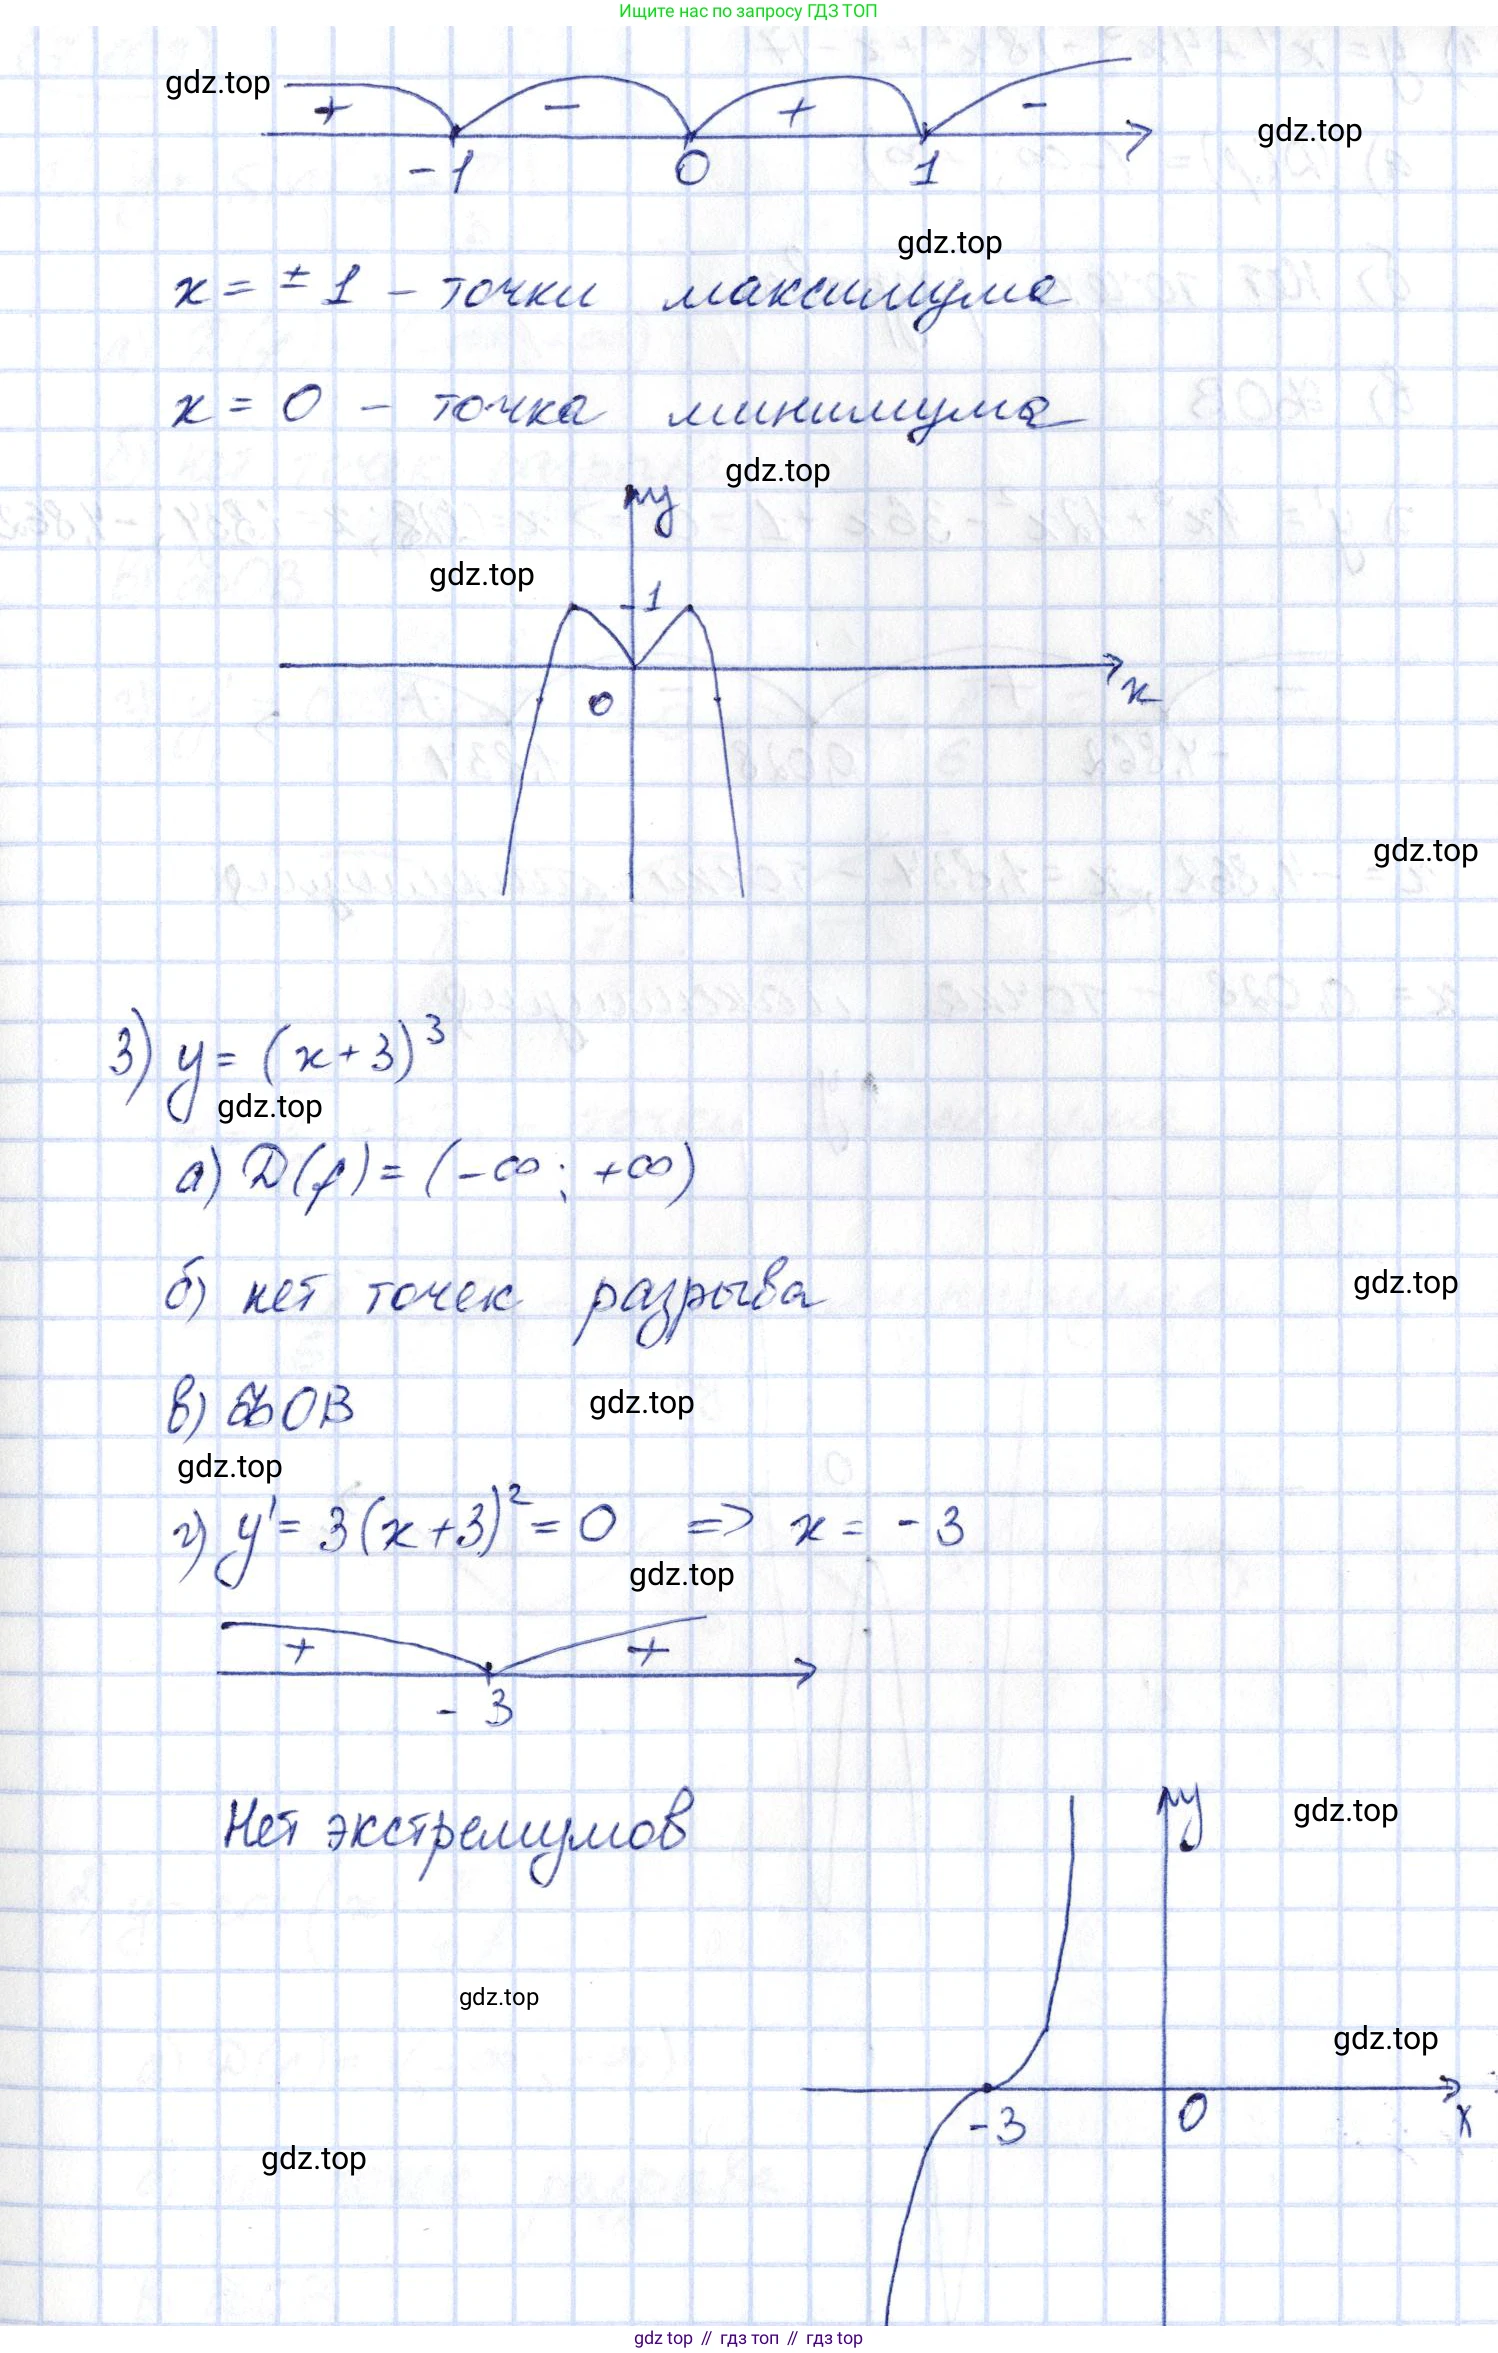 Ищите нас по запросу ГДЗ ТОП
gdz.top
+ - + -
-1 0 1
gdz.top
gdz.top
x = ± 1 - точки максимума
x = 0 - точка минимума
gdz.top
y
gdz.top
1
0
x
gdz.top
3) y = (x+3)³
gdz.top
а) D(f) = (-∞; +∞)
б) нет точек разрыва
gdz.top
в) ОВ
gdz.top
gdz.top
г) y' = 3(x+3)² = 0 => x = -3
gdz.top
+ +
-3
Нет экстремумов
y
gdz.top
gdz.top
gdz.top
-3 0 x
gdz.top
gdz top // гдз топ // гдз top